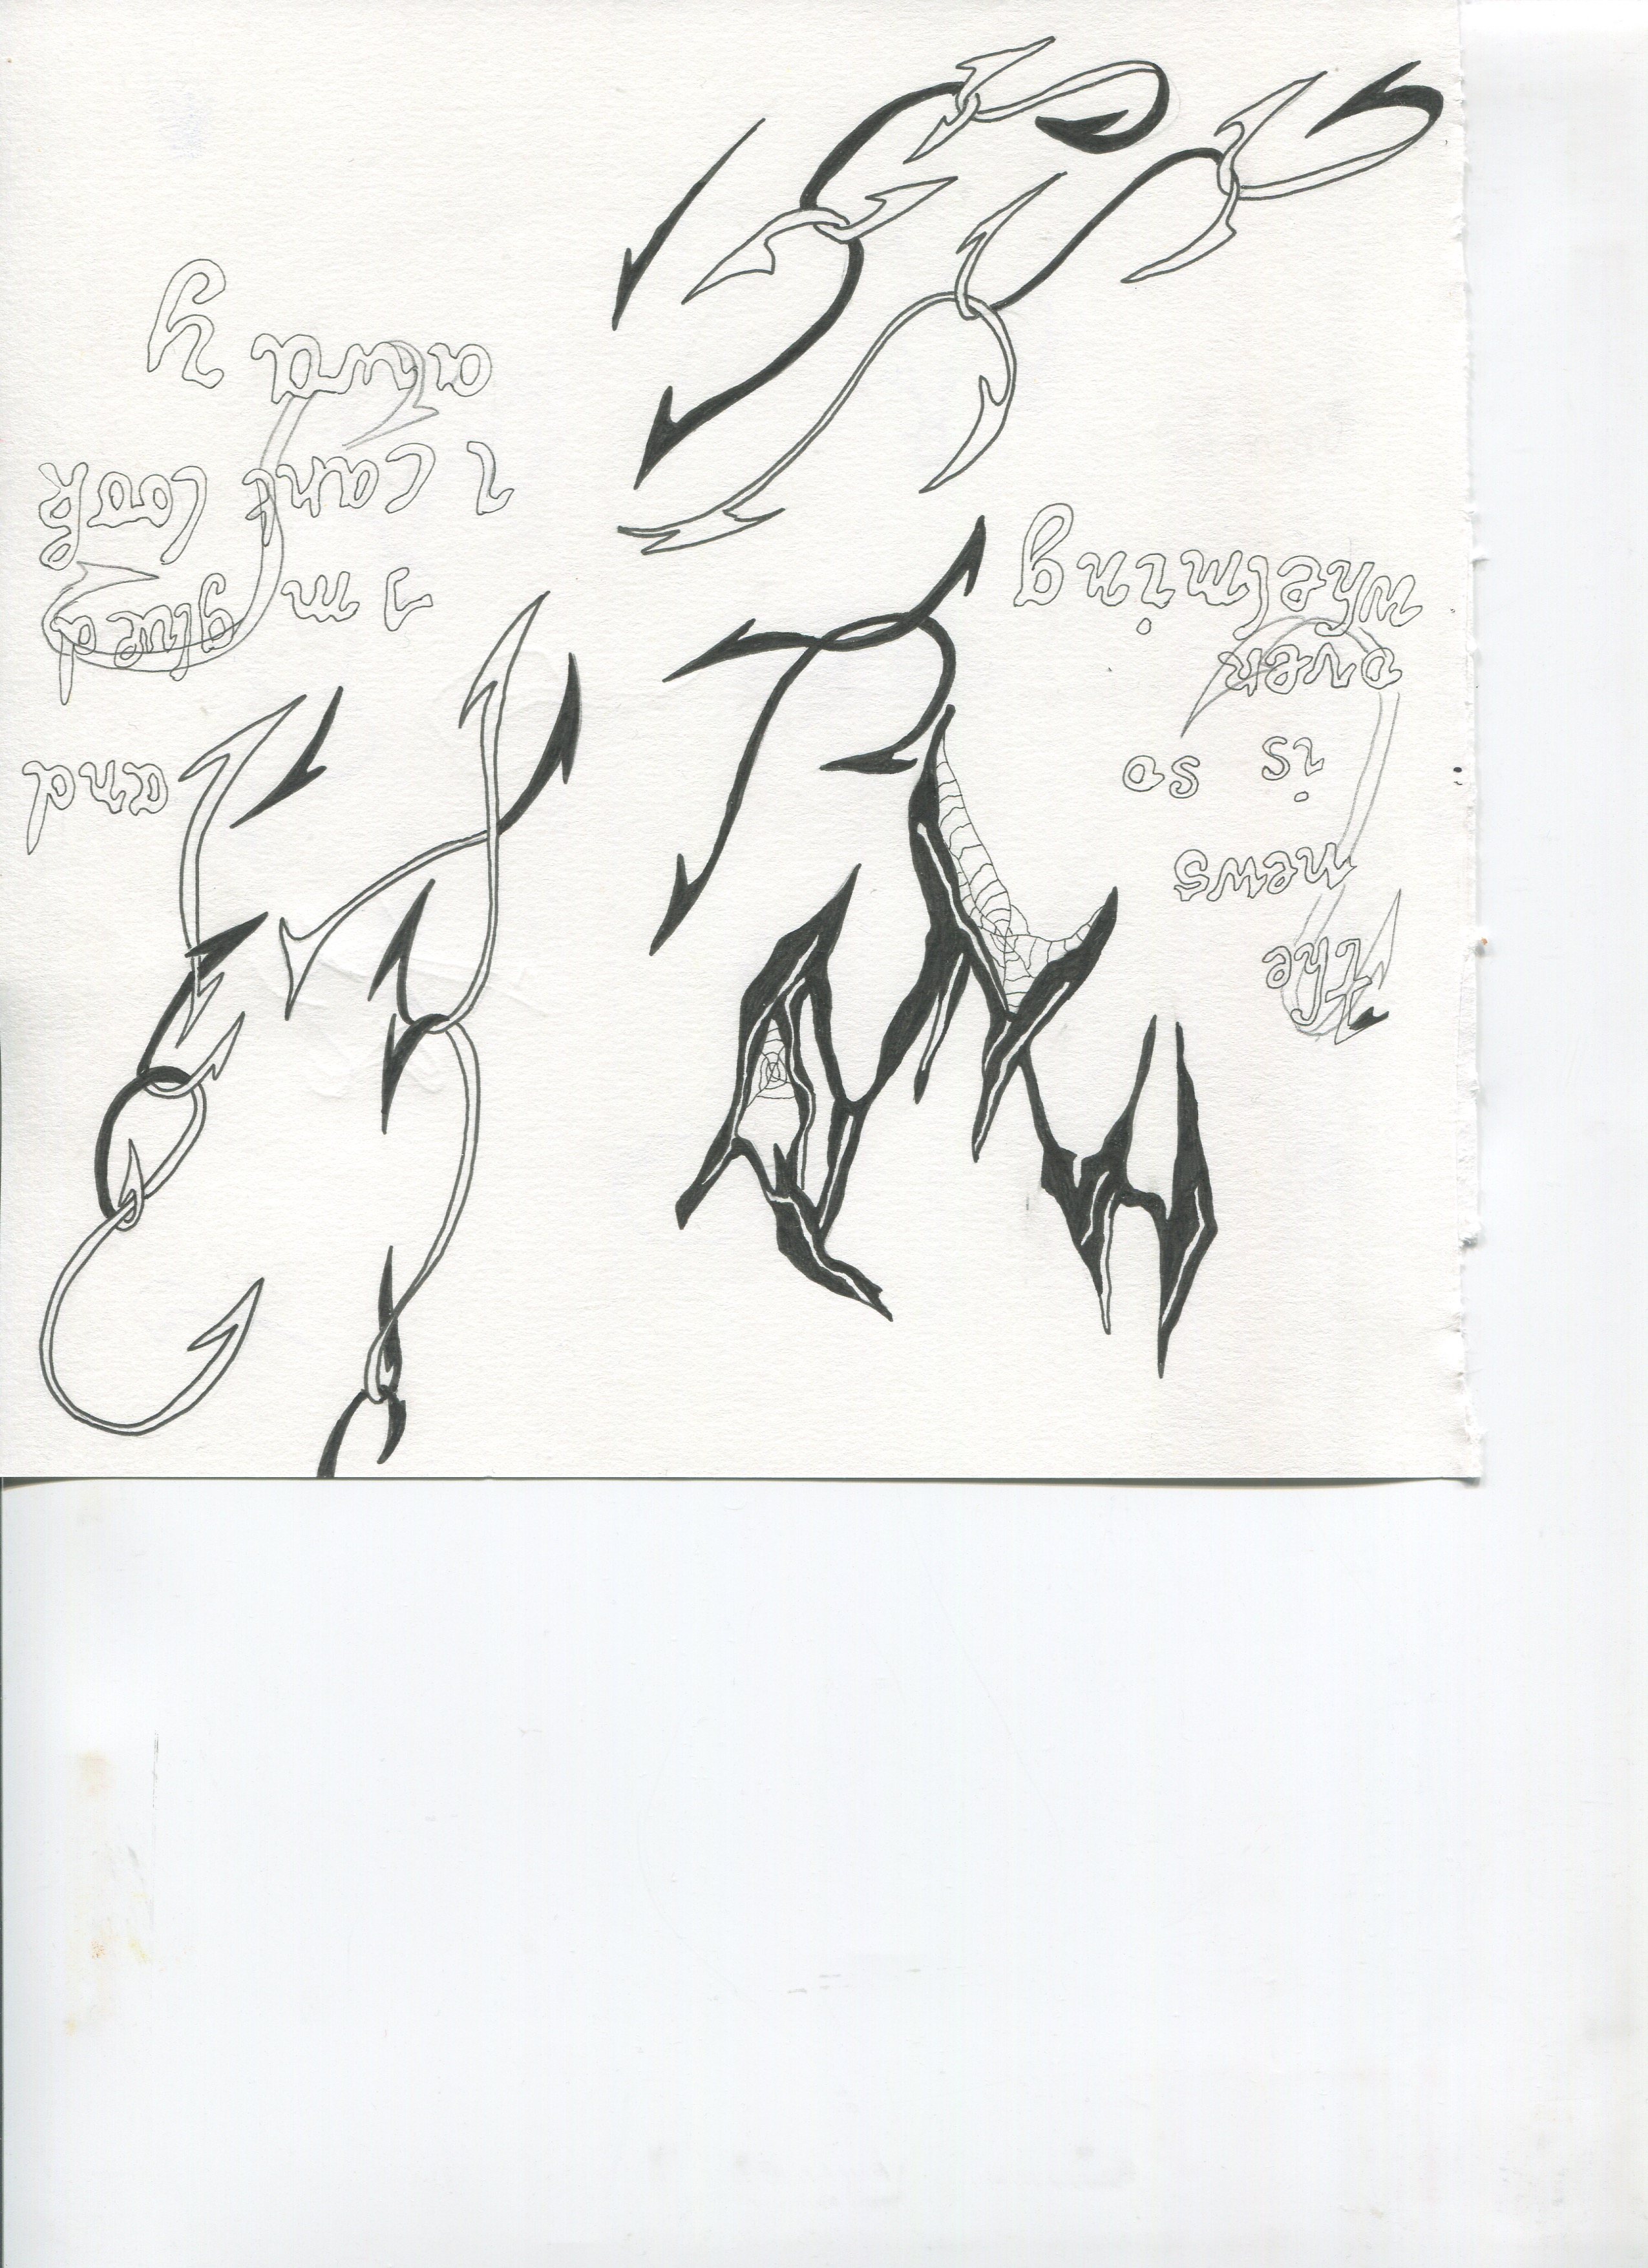 the
news
is so
over
whelming
and
I m glued
I cant look
away